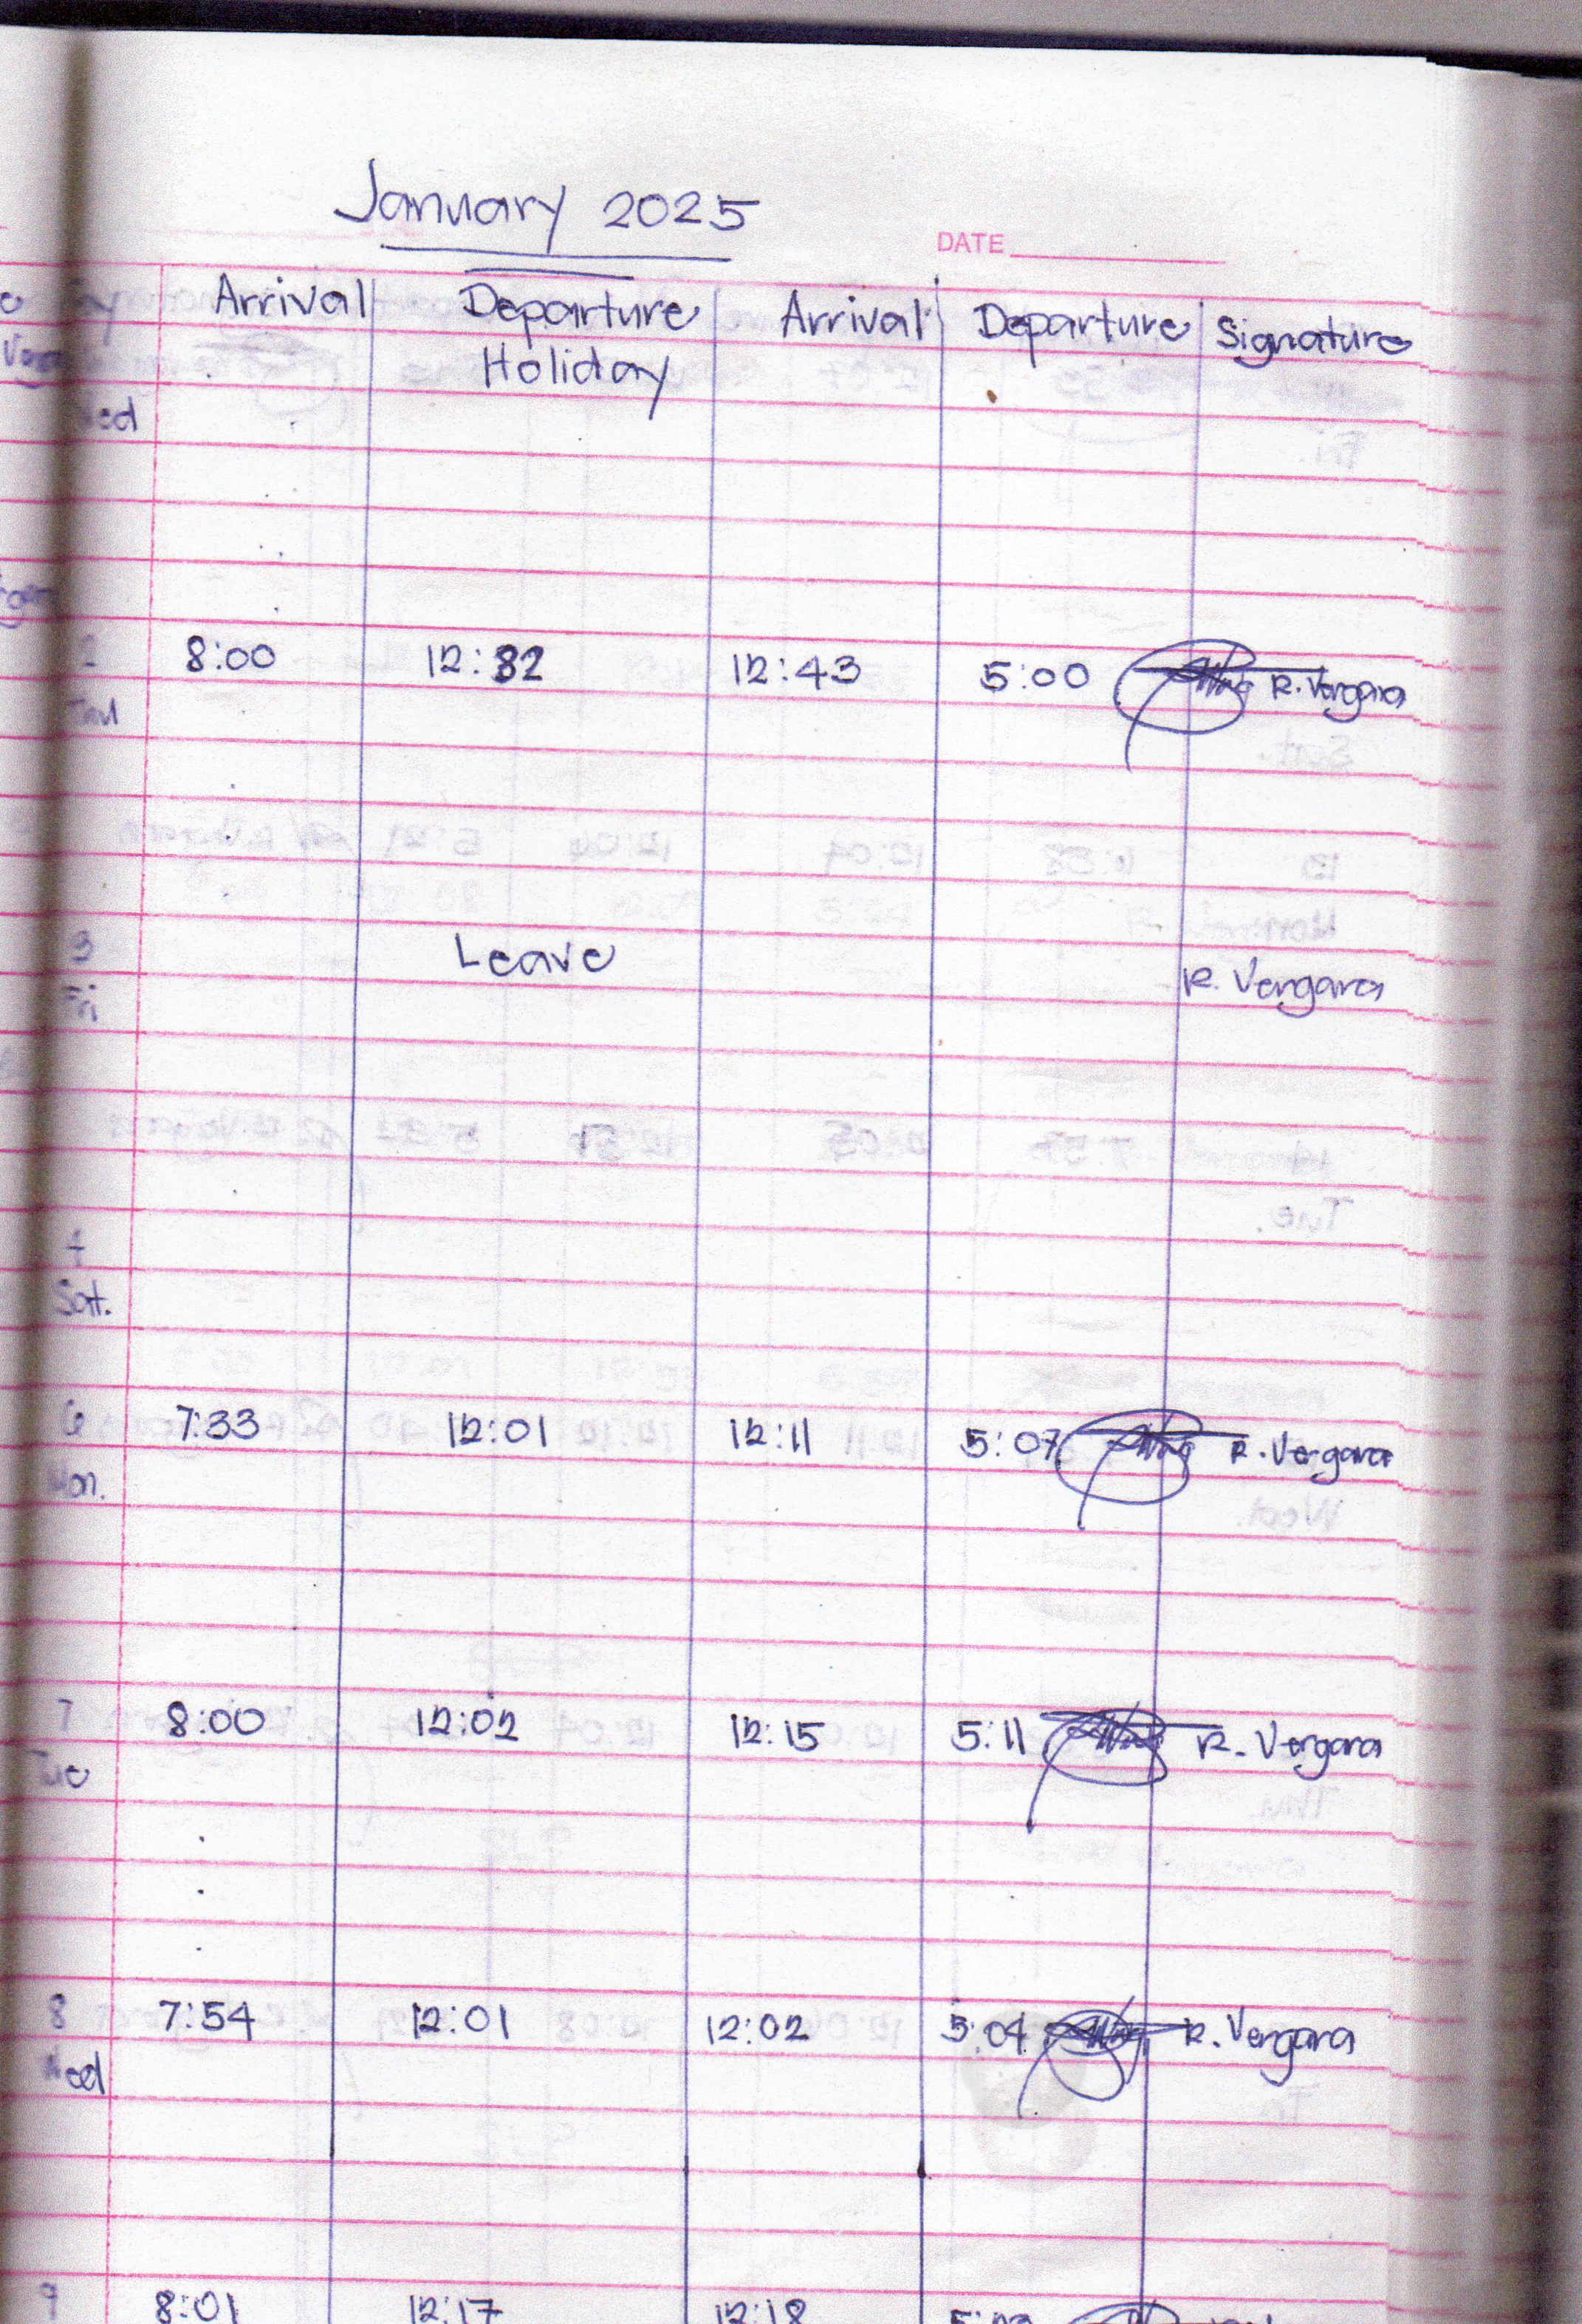 January 2025
DATE
Arrival Departure Arrival Departure Signature
Holiday
2 8:00 12:32 12:43 5:00 R. Vergara
3 Leave R. Vergara
Fri
4
Sat.
6 7:33 12:01 12:11 5:07 R. Vergara
Mon.
7 8:00 12:02 12:15 5:11 R. Vergara
Tue
8 7:54 12:01 12:02 5:04 R. Vergara
Wed
9 8:01 12:17 12:18